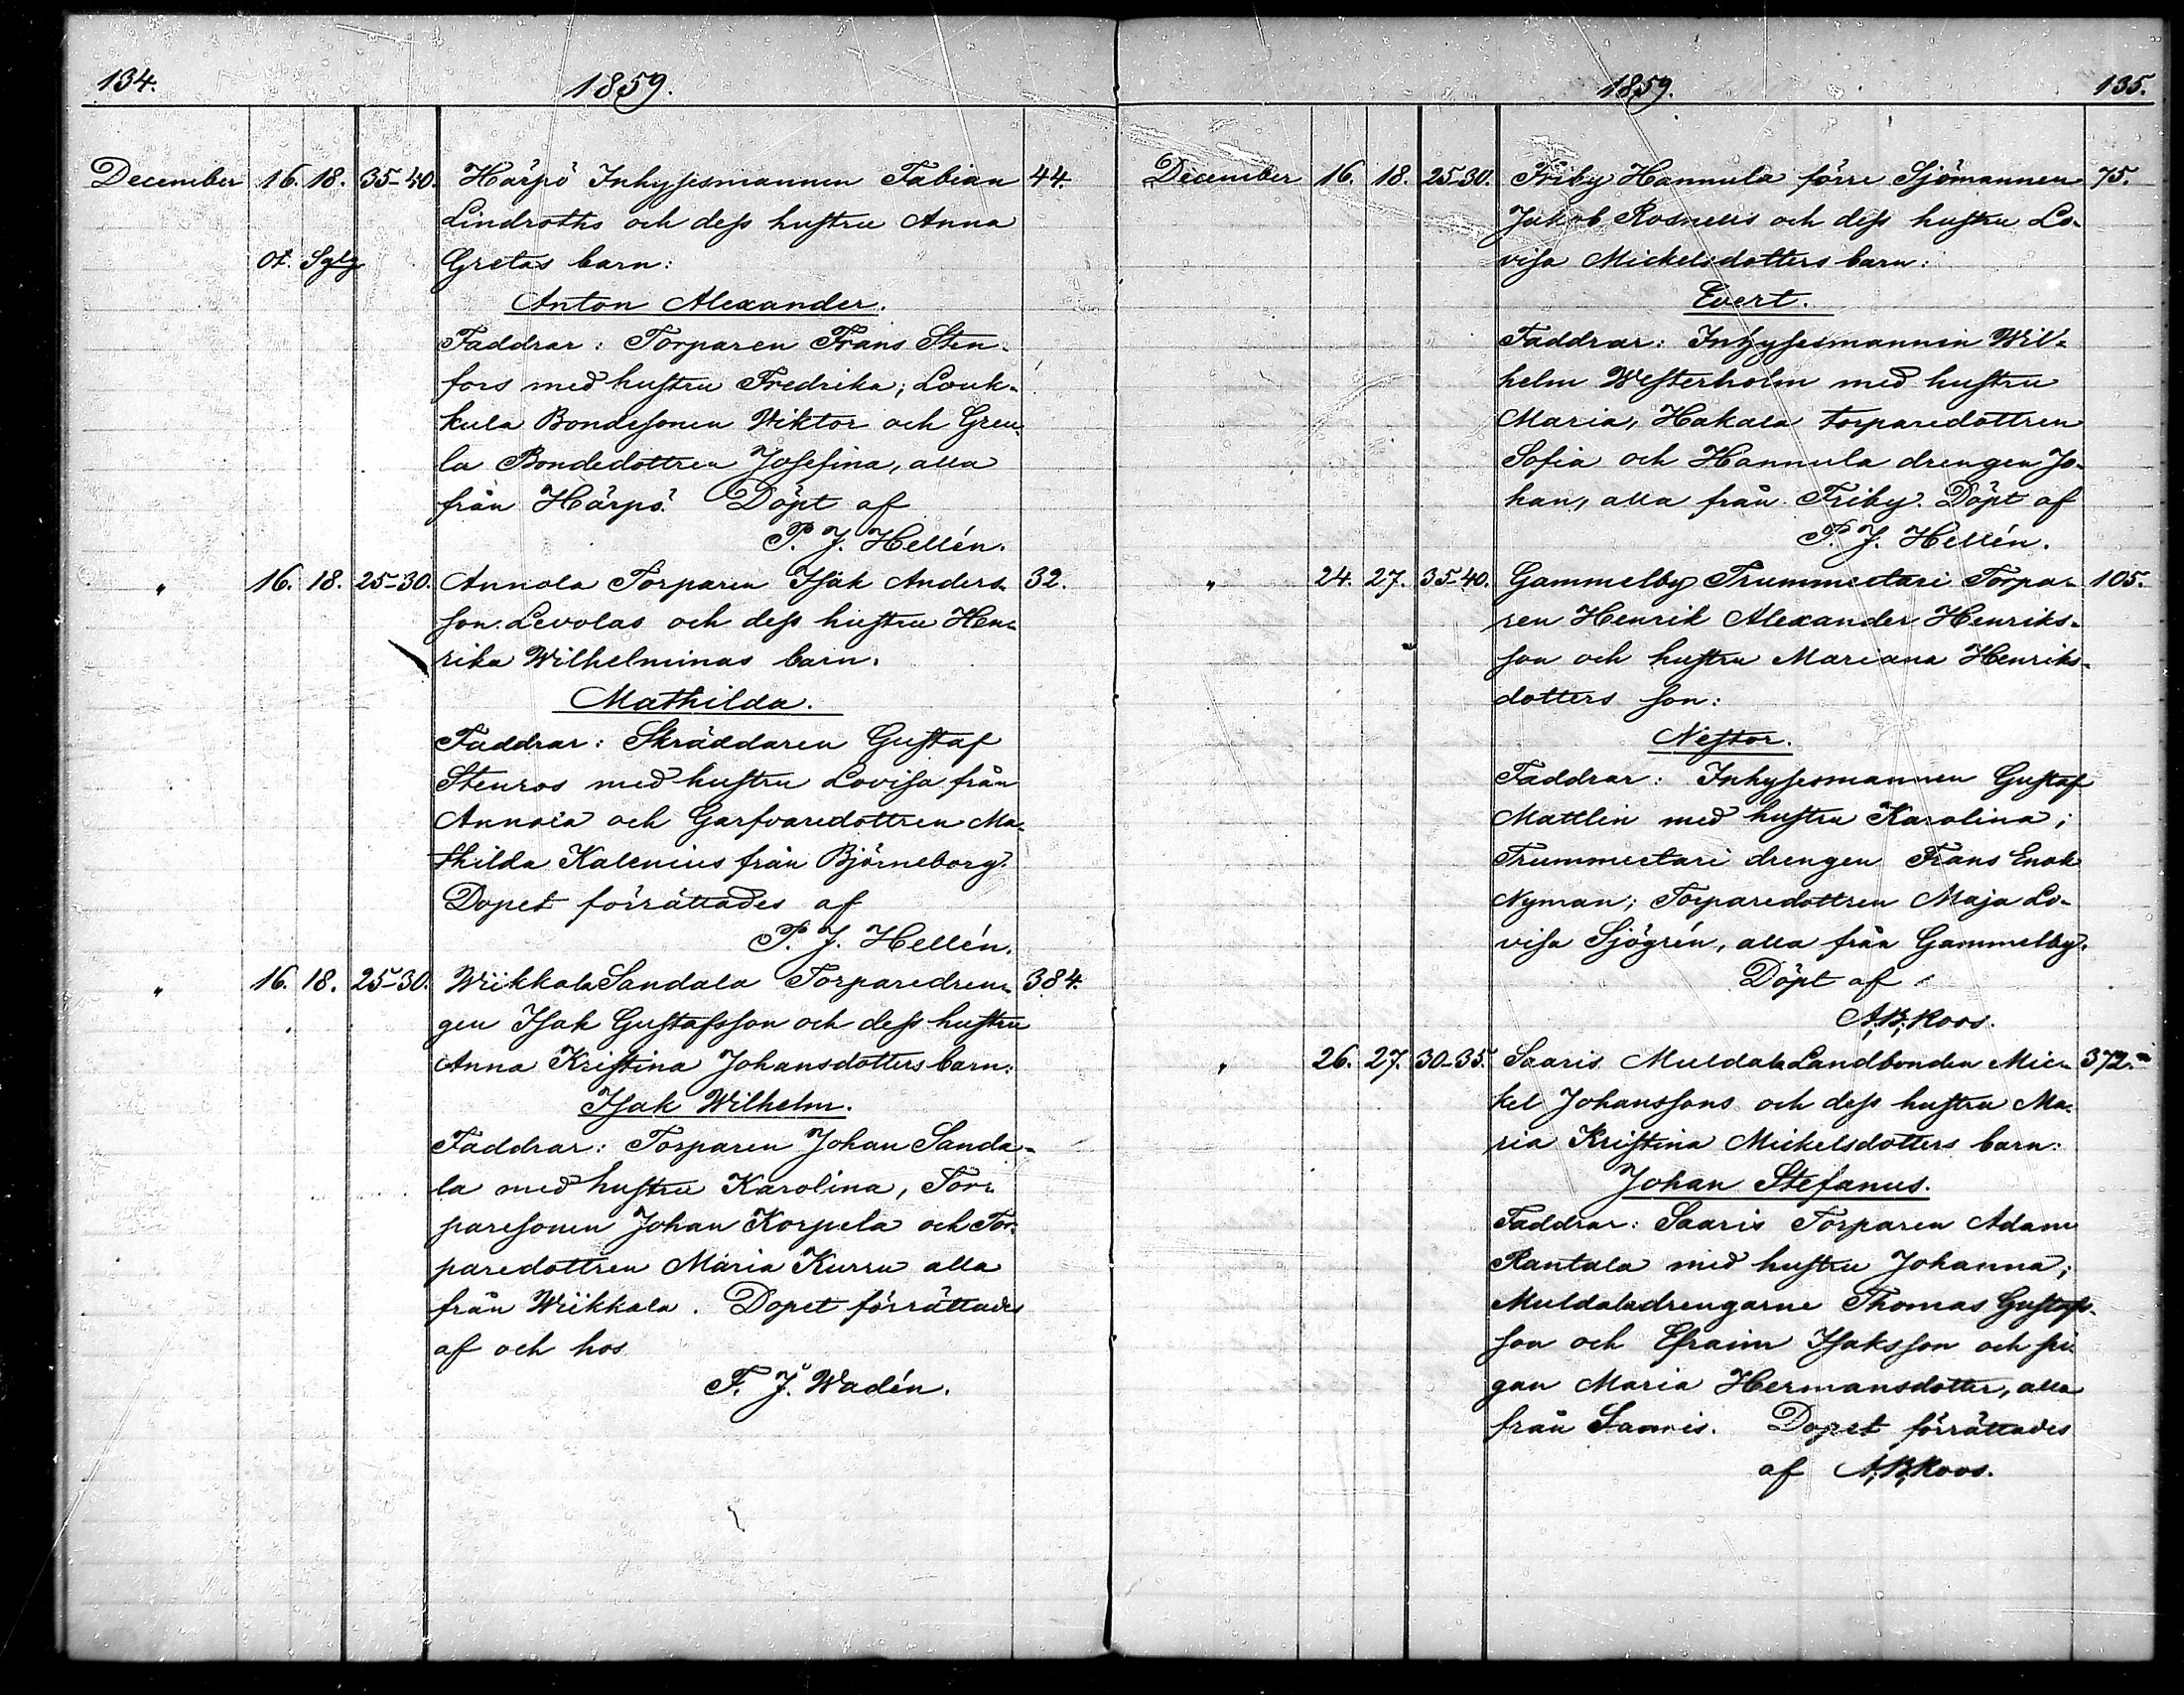 134. 1859.
December 16. 18. 35-40. Härpö Inhysesmannen Fabian 44.
Lindroths och dess hustru Anna
Of. Sgtg Gretas barn:
Anton Alexander.
Faddrar: Torparen Frans Sten-
fors med hustru Fredrika; Louk-
kula Bondesonen Wiktor och Greu-
la Bondedottren Josefina, alla
från Härpö. Döpt af
P. J. Hellén.
" 16. 18. 25-30. Annola Torparen Isak Anders- 32.
son Levolas och dess hustru Hen-
rika Wilhelminas barn.
Mathilda.
Faddrar: Skräddaren Gustaf
Stenros med hustru Lovisa från
Annola och Garfvaredottren Ma-
thilda Kalenius från Björneborg.
Dopet förrättades af
P. J. Hellén.
" 16. 18. 25-30. Wiikkala Sandala Torparedren- 384.
gen Isak Gustafsson och dess hustru
Anna Kristina Johansdotters barn:
Isak Wilhelm.
Faddrar: Torparen Johan Sanda-
la med hustru Karolina, Tor-
paresonen Johan Korpela och Tor-
paredottren Maria Kurru alla
från Wiikkala. Dopet förrättades
af och hos
F. J. Wadén.
1859. 135.
December 16. 18. 25-30. Friby Hannula förre Sjömannen 75.
Jakob Rosnells och dess hustru Lo-
visa Mickelsdotters barn:
Evert.
Faddrar: Inhysesmannen Wil-
helm Westerholm med hustru
Maria, Hakala torparedottren
Sofia och Hannula drengen Jo-
han, alla från Friby. Döpt af
P. J. Hellén.
" 24. 27. 35-40. Gammelby Trummetari Torpa- 105.
ren Henrik Alexander Henriks-
son och hustru Mariana Henriks-
dotters son:
Nestor.
Faddrar: Inhysesmannen Gustaf
Mattlin med hustru Karolina;
Trummetari drengen Frans Enok
Nyman; Torparedottren Maja Lo-
visa Sjögrén, alla från Gammelby.
Döpt af
A. B. Roos.
" 26. 27. 30-35. Saaris Muldala Landbonden Mic- 372.
kel Johanssons och dess hustru Ma-
ria Kristina Mickelsdotters barn:
Johan Stefanus.
Faddrar: Saaris Torparen Adam
Rantala med hustru Johanna;
Muldaladrengarne Thomas Gustafs-
son och Efraim Isaksson och pi-
gan Maria Hermansdotter, alla
från Saaris. Dopet förrättades
af A. B. Roos.